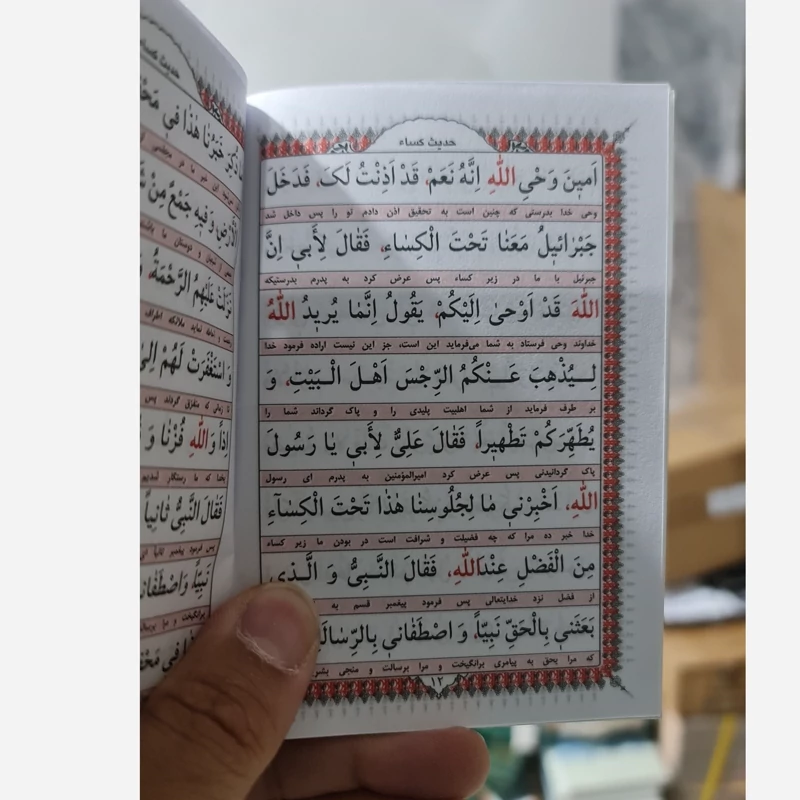 حدیث کساء
اَمینَ وَحْیِ اللّٰهِ اِنَّهُ نَعَمْ، قَدْ اَذِنْتُ لَکَ، فَدَخَلَ
وحی خدا بدرستی که چنین است به تحقیق اذن دادم تو را پس داخل شد
جَبْرائیلُ مَعَنا تَحْتَ الْکِساءِ، فَقالَ لِأَبی اِنَّ
جبرئیل با ما در زیر کساء پس عرض کرد به پدرم بدرستیکه
اللّٰهَ قَدْ اَوْحیٰ اِلَیْکُمْ، یَقُولُ اِنَّما یُریدُ اللّٰهُ
خداوند وحی فرستاد به شما می‌فرماید این است، جز این نیست اراده فرمود خدا
لِـیُذْهِبَ عَـنْکُمُ الرِّجْسَ اَهْـلَ الْـبَیْتِ، وَ
بر طرف فرماید از شما اهلبیت پلیدی را و پاک گرداند شما را
یُطَهِّرَکُمْ تَطْهیراً، فَقالَ عَلِیٌّ لِأَبی یا رَسُولَ
پاک گردانیدنی پس عرض کرد امیرالمؤمنین به پدرم ای رسول
اللّٰهِ، اَخْبِرْنی ما لِجُلُوسِنا هٰذا تَحْتَ الْکِسآءِ
خدا خبر ده مرا که چه فضیلت و شرافت است در بودن ما زیر کساء
مِنَ الْفَضْلِ عِنْدَاللّٰهِ، فَقالَ النَّـبِیُّ وَ الَّـذی
از فضل نزد خدایتعالی پس فرمود پیغمبر قسم به
بَعَثَنی بِالْحَقِّ نَبِیّاً، وَ اصْطَفانی بِالرِّسالَةِ
که مرا بحق به پیامبری برانگیخت و مرا برسالت و منجی بشر
۱۲
حدیث کساء
ذُکِرَ خَبَرُنا هٰذا فی
الْأَرْضِ وَ فیهِ جَمْعٌ مِنْ
نَزَلَتْ عَلَیْهِمُ الرَّحْمَةُ،
وَ اسْتَغْفَرَتْ لَهُمْ اِلیٰ
اِذاً وَاللّٰهِ فُزْنا وَ
فَقالَ النَّبِیُّ ثانِیاً
نَبِیّاً، وَاصْطَفانی